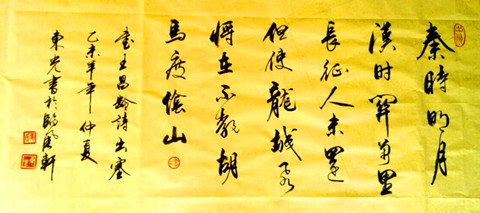 秦時明月
漢时関萬里
長征人未還
但使龍城飛
將在不教胡
馬度陰山
王昌龄詩出塞
乙未羊年仲夏
東光書於風軒